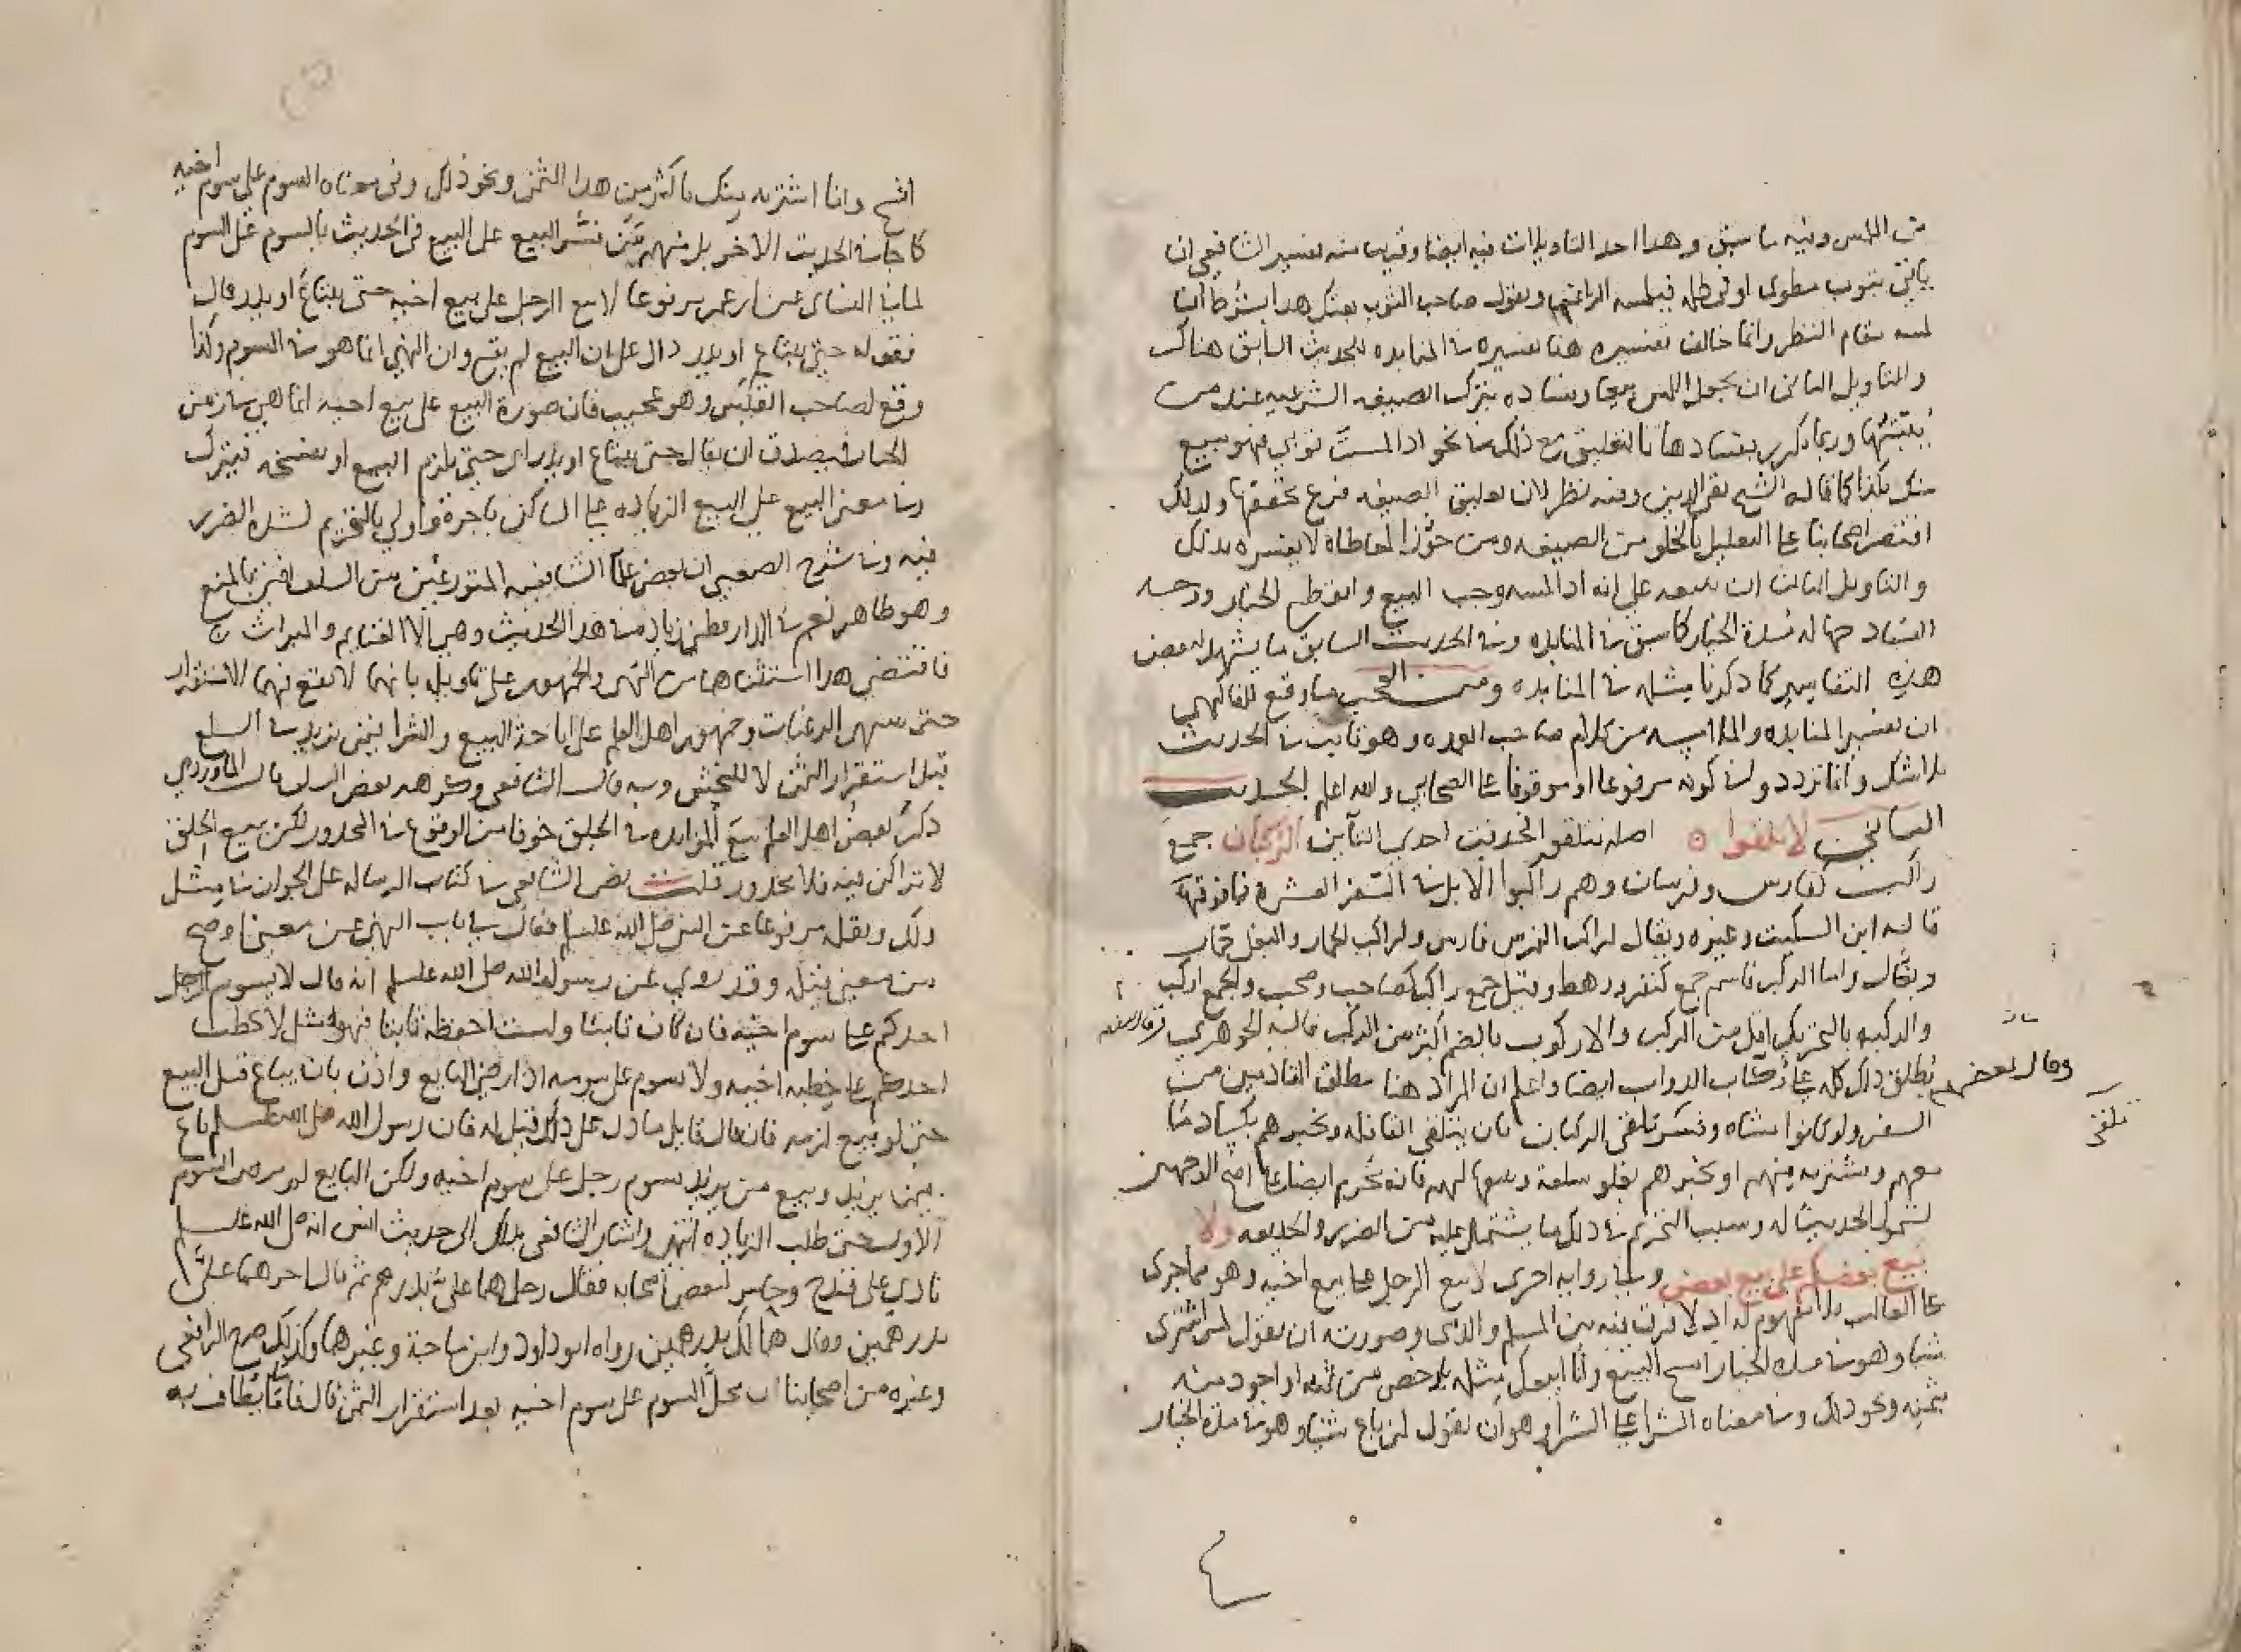 من اللمس وفيه ما سبق وهدا احد التاويلات فيه ايضا وقريب منه تفسير الشافعي ان
ياتى بثوب مطوى او فى ظلمه فيلمسه الراغب ويقول صاحب الثوب بعتك هدا بشرط ان
لمسه مقام النظر وانما خالف تفسيره هنا تفسيره فى المنابده للحديث السابق هناك
والتاويل الثانى ان يجعل اللمس بيعا وفساده بترك الصيغه الشرعيه عند من
يعتبرها وربما ذكر بفسادها بالتعليق مع ذلك فى نحو ادا لمست ثوبي فهو مبيع
منك بكذا كما قاله الشيخ تقي الدين وفيه نظر لان تعليق الصيغه فرع تحققها ولدلك
اقتصر اصحابنا على التعليل بالخلو من الصيغه ومن جوز المعاطاه لا يفسره بدلك
والتاويل الثالث ان يبيعه على انه ادا لمسه وجب البيع وانقطع الخيار ووجه
الفساد جهاله مدة الخيار كما سبق فى المنابده وفى الحديث السابق ما يشهد لبعض
هذه التفاسير كما دكرنا مثله فى المنابده ومن العجب ما وقع للفاكهي
ان تفسير المنابده والملامسه من كلام صاحب العمده وهو ثابت فى الحديث
بلا شك وانما تردد وا فى كونه مرفوعا او موقوفا على الصحابى والله اعلم الحديث
الثانى لا تلقوا ه اصله تتلقوا فحذفت احدى التآين الركبان جمع
راكب كفارس وفرسان وهم راكبوا الابل فى السفر العشرة فما فوقها
قاله ابن السكيت وغيره ويقال لراكب الفرس فارس ولراكب الحمار والبغل حمار
وبغال واما الركب فاسم جمع كنفر ورهط وقيل جمع راكب كصاحب وصحب والجمع اركب
والركبه بالتحريك اقل من الركب والاركوب بالضم اكثر من الركب قاله الجوهري
وقال بعضهم
يطلق ذلك كله على ركاب الدواب ايضا واعلم ان المراد هنا مطلق القادمين من
تلقى
السفر ولو كانوا مشاه وفسر تلقى الركبان بان يتلقى القافله ويخبرهم بكساد ما
معهم ويشتريه منهم او يخبرهم بغلو سلعة ويبيعها لهم فانه يحرم ايضا على اصح الوجهين
لشمول الحديث له وسبب التحريم فى ذلك ما يشتمل عليه من الضرر والخديعه ولا
يبيع بعضكم على بيع بعض وفى روايه اخرى لا يبع الرجل على بيع اخيه وهو مما جرى
على الغالب فلا مفهوم له اد لا فرق فيه بين المسلم والذمى وصورته ان يقول لمن اشترى
شيا وهو فى مدة الخيار افسخ البيع وانا ابيعك مثله بارخص من ثمنه او اجود منه
بثمنه ونحو ذلك وفى معناه الشرا على الشرا وهو ان يقول لمن باع شيا وهو فى مدة الخيار
افسخ وانا اشتريه منك باكثر من هدا الثمن ونحو ذلك وفى معناه السوم على سوم اخيه
كما جا فى الحديث الاخر بل منهم من فسر البيع على البيع فى الحديث بالسوم على السوم
لما فى النساى عن ابن عمر مرفوعا لا يبع الرجل على بيع اخيه حتى يبتاع او يذر قال
فقوله حتى يبتاع او يدر دال على ان البيع لم يقع وان النهي انما هو فى السوم وكذا
وقع لصاحب القبس وهو عجيب فان صورة البيع على بيع احيه انما هى فى زمن
الخيار فيصدق ان يقال حتى يبتاع او يذر اى حتى يلزم البيع او يفسخه فيترك
وفى معنى البيع على البيع الزياده على الساكن باجرة واولى بالتحريم لشدة الضرر
فيه وفى شرح الصعبى ان بعض علما الشافعيه المتورعين من السلف افتى بالمنع
وهو ظاهر نعم فى الدارقطنى زياده فى هدا الحديث وهى الا الغنايم والمواريث
فاقتضى هدا استثناهما من النهى والجمهور على تاويله بانهما لا يقع فيهما الاستقرار
حتى تنتهى الرغبات وجمهور اهل العلم على اباحة البيع والشرا فيمن يزيد فى السلع
قبل استقرار الثمن لا للنجش وبه قال الشافعى وكرهه بعض السلف قال الماوردي
ذكر بعض اهل العلم بيع المزايده فى الحلق خوفا من الوقوع فى المحدور لكن بيع الحلق
لا تراكن فيه فلا محدور قلت نص الشافعى فى كتاب الرساله على الجواز فى مثل
ذلك ونقله مرفوعا عن النبى صلى الله عليه وسلم فقال فى باب النهى عن معنى اوضح
من معنى قبله وقد روي عن رسول الله صلى الله عليه وسلم انه قال لا يسوم الرجل
احدكم على سوم اخيه فان كان ثابتا ولست احفظه ثابتا فهو مثل لا يخطب
احدكم على خطبه اخيه ولا يسوم على سومه اذا رضى البايع واذن بان يباع قبل البيع
حتى لو بيع لزمه فان قال قايل ما دل على ذلك قيل له فان رسول الله صلى الله عليه وسلم باع
فيمن يزيد وبيع من يزيد سوم رجل على سوم اخيه ولكن البايع لم يرض السوم
الاول حتى طلب الزياده انتهى واشار الشافعى بذلك الى حديث انس انه صلى الله عليه وسلم
نادى على قدح وحلس لبعض اصحابه فقال رجل هما على بدرهم ثم قال اخر هما على
بدرهمين وقال هما لك بدرهمين رواه ابو داود وابن ماجة وغيرهما وكذلك صرح الرافعى
وغيره من اصحابنا ان محل السوم على سوم اخيه بعد استقرار الثمن قال فاما ما يطاف به